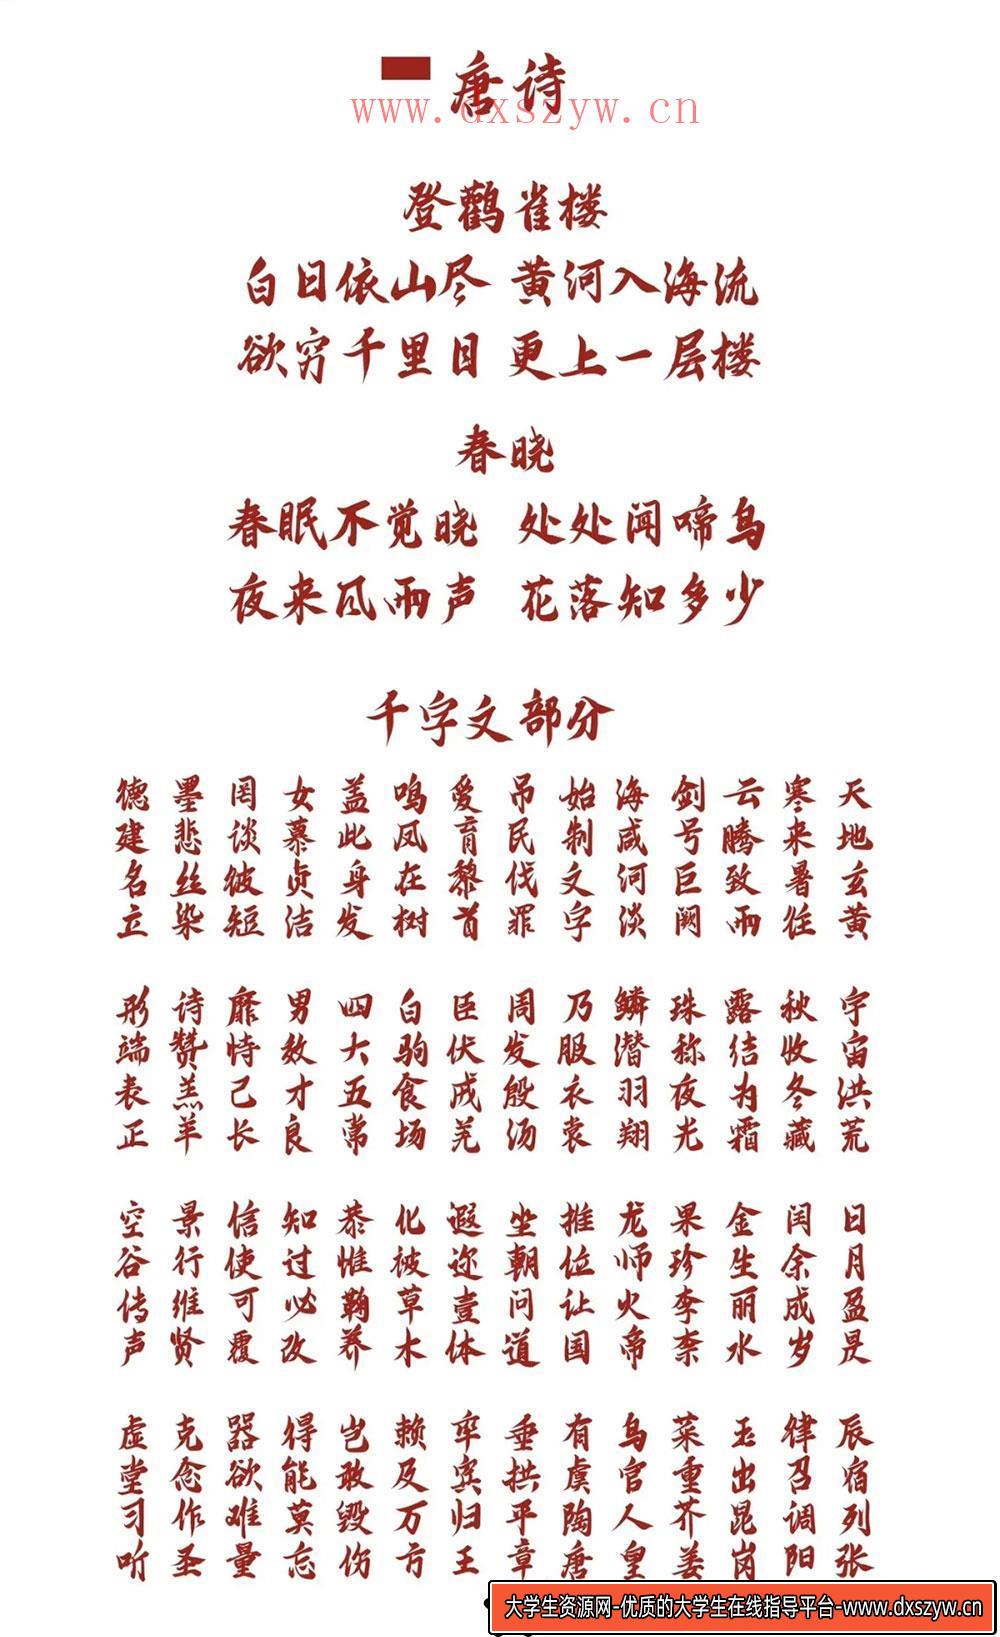 唐诗
www.dxszyw.cn
登鹳雀楼
白日依山尽 黄河入海流
欲穷千里目 更上一层楼
春晓
春眠不觉晓 处处闻啼鸟
夜来风雨声 花落知多少
千字文部分
天地玄黄 宇宙洪荒 日月盈昃 辰宿列张
寒来暑往 秋收冬藏 闰余成岁 律召调阳
云腾致雨 露结为霜 金生丽水 玉出昆岗
剑号巨阙 珠称夜光 果珍李柰 菜重芥姜
海咸河淡 鳞潜羽翔 龙师火帝 鸟官人皇
始制文字 乃服衣裳 推位让国 有虞陶唐
吊民伐罪 周发殷汤 坐朝问道 垂拱平章
爱育黎首 臣伏戎羌 遐迩壹体 率宾归王
鸣凤在树 白驹食场 化被草木 赖及万方
盖此身发 四大五常 恭惟鞠养 岂敢毁伤
女慕贞洁 男效才良 知过必改 得能莫忘
罔谈彼短 靡恃己长 信使可覆 器欲难量
墨悲丝染 诗赞羔羊 景行维贤 克念作圣
德建名立 形端表正 空谷传声 虚堂习听
大学生资源网-优质的大学生在线指导平台-www.dxszyw.cn